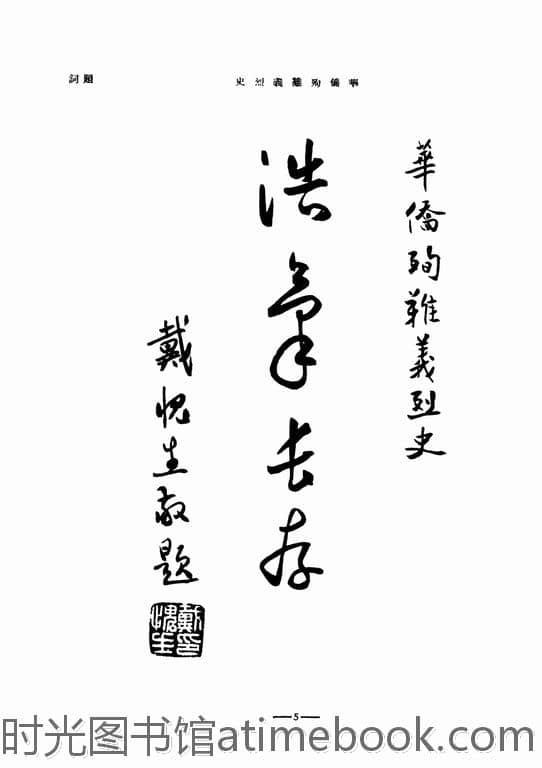 華僑殉難義烈史
題詞
華僑殉難義烈史
浩氣長存
戴愧生敬題
戴愧生印
—5—
时光图书馆atimebook.com